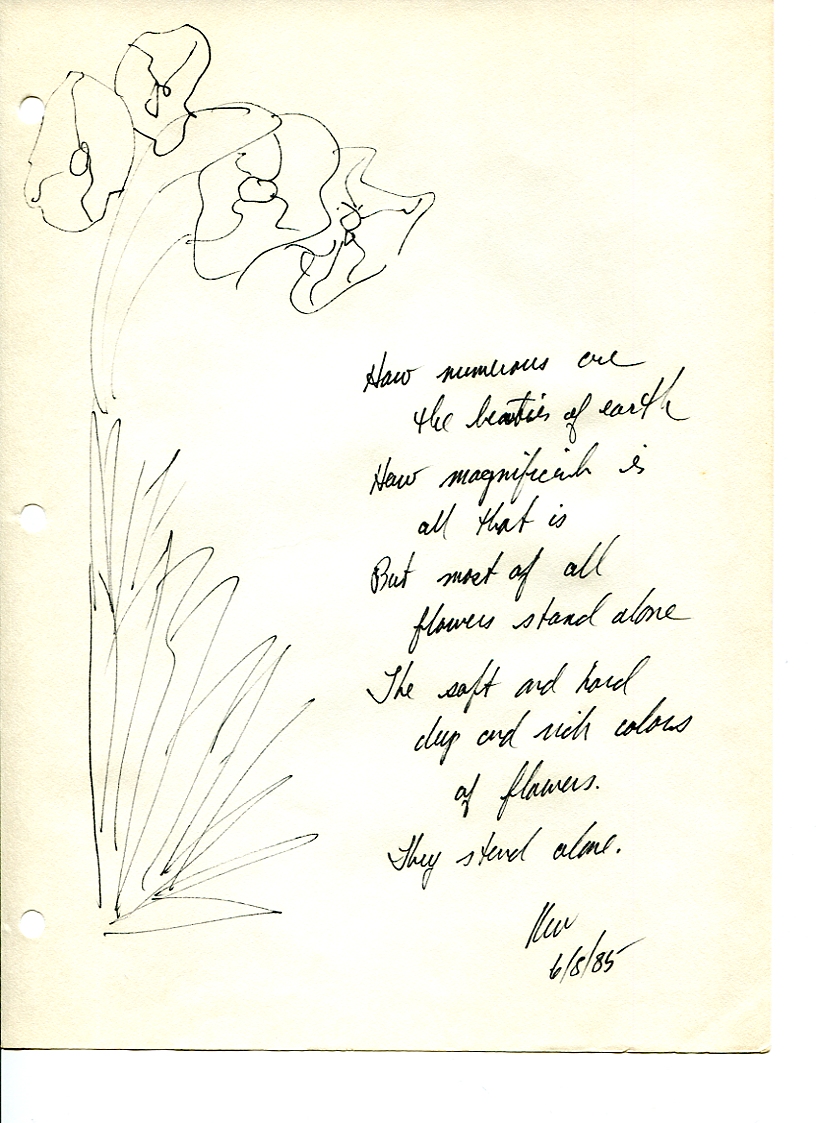 How numerous are
the beauties of earth
How magnificent is
all that is
But most of all
flowers stand alone
The soft and hard
deep and rich colors
of flowers.
They stand alone.
6/8/85